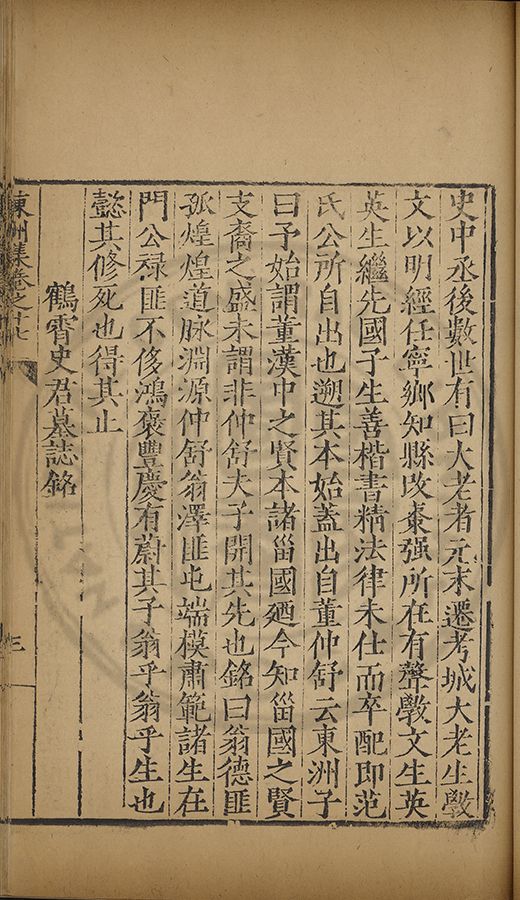 史中丞後數世有曰大老者元末遷考城大老生斆
文以明經任寧鄉知縣改棗强所在有聲斆文生英
英生繼先國子生善楷書精法律未仕而卒配即范
氏公所自出也遡其本始葢出自董仲舒云東洲子
曰予始謂董漢中之賢本諸甾國廼今知甾國之賢
支裔之盛未謂非仲舒夫子開其先也銘曰翁德匪
孤煌煌道脉淵源仲舒翁澤匪屯端模肅範諸生在
門公祿匪不侈鴻褒豐慶有蔚其子翁乎翁乎生也
懿其修死也得其止
鶴霄史君墓誌銘
東洲集卷之十七